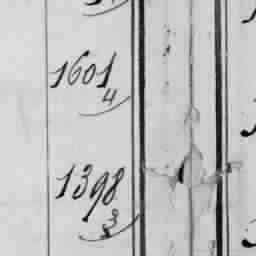 1601
4
1398
3